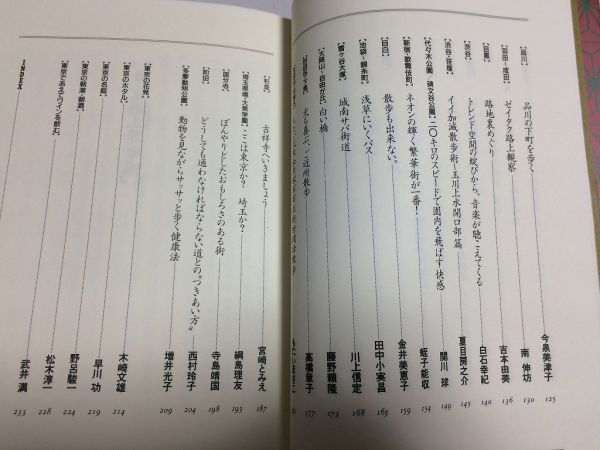 [品川] 品川の下町を歩く 今泉美津子 125
[羽田~成田] ゼイタク路上観察 南 伸坊 130
[目黒] 路地裏めぐり 吉本由美 136
[渋谷] トレンド空間の綻びから、音楽が聴こえてくる 白石幸紀 140
[渋谷・笹塚] イイ加減散歩術—玉川上水開口部篇 夏目房之介 145
[代々木公園、碑文谷公園] 二〇キロのスピードで園内を飛ばす快感 関川 球 149
[新宿・歌舞伎町] ネオンの輝く繁華街が一番! 蛭子能収 154
[目白] 散歩も出来ない。 金井美恵子 159
[池袋~錦糸町] 浅草にいくバス 田中小実昌 163
城南サバ街道 川上信定 169
[大岡山~自由が丘] 白い橋 藤野頼隆 173
犬も喜ぶ、ご近所散歩 高橋章子 177
[杉並] 吉祥寺へいきましょう 宮崎とみえ 187
[埼玉県境・大泉学園] ここは東京か? 埼玉か? 綱島理友 193
[国分寺] ぼんやりとしたおもしろさのある街 寺島靖国 198
[町田] どうしても通わなければならない道との“つきあい方” 西村玲子 204
[多摩動物公園] 動物を見ながらサッサッと歩く健康法 増井光子 209
[東京の花見] 木崎文雄 214
[東京のホタル] 早川 功 219
[東京の名庭] 野呂 駿 224
[東京の競渡・観潮] 松木淳一 228
[東京であえてワインを飲む] 武井 満 233
INDEX